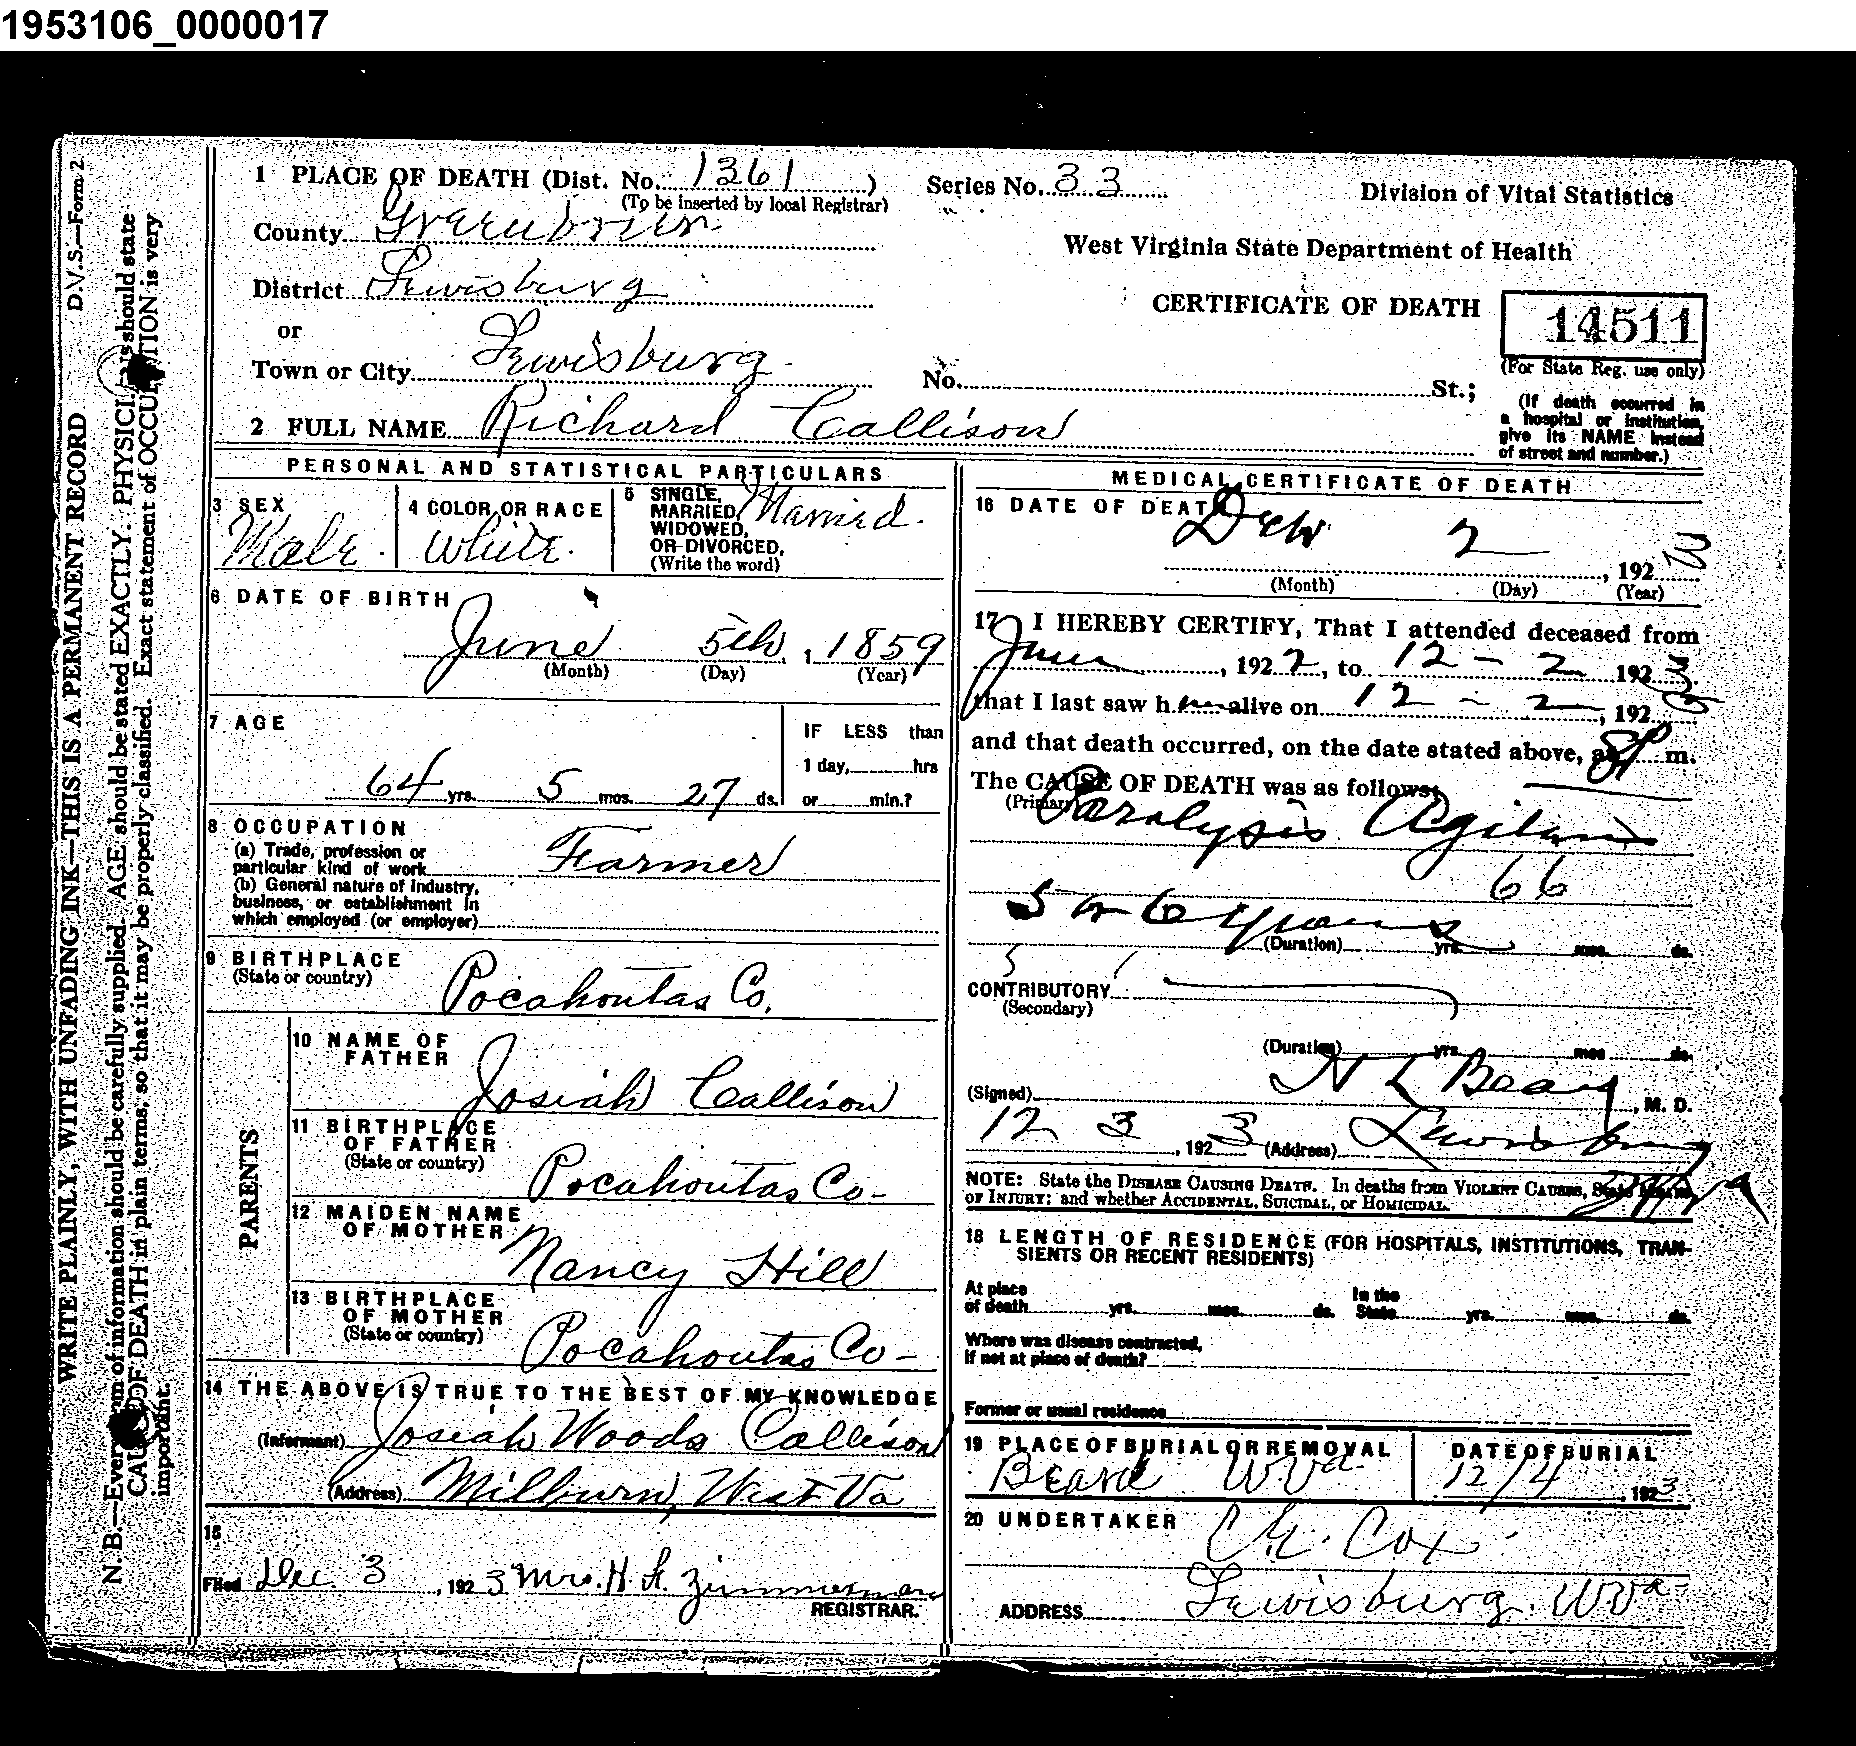 1953106_0000017
D.V.S.—Form 2
WRITE PLAINLY, WITH UNFADING INK—THIS IS A PERMANENT RECORD
N. B.—Every item of information should be carefully supplied. AGE should be stated EXACTLY. PHYSICIANS should state
CAUSE OF DEATH in plain terms, so that it may be properly classified. Exact statement of OCCUPATION is very
important.
1 PLACE OF DEATH (Dist. No. 1361 )
(To be inserted by local Registrar)
Series No. 33
Division of Vital Statistics
County Greenbrier
West Virginia State Department of Health
District Lewisburg
CERTIFICATE OF DEATH
14511
(For State Reg. use only)
or
Town or City Lewisburg
No. St.;
(If death occurred in
a hospital or institution,
give its NAME instead
of street and number.)
2 FULL NAME Richard Callison
PERSONAL AND STATISTICAL PARTICULARS
3 SEX
Male.
4 COLOR OR RACE
White.
5 SINGLE,
MARRIED,
WIDOWED,
OR DIVORCED,
(Write the word)
Married.
6 DATE OF BIRTH
June 5th, 1859
(Month) (Day) (Year)
7 AGE
64 yrs. 5 mos. 27 ds.
IF LESS than
1 day, hrs
or min.?
8 OCCUPATION
(a) Trade, profession or
particular kind of work Farmer
(b) General nature of industry,
business, or establishment in
which employed (or employer)
9 BIRTHPLACE
(State or country)
Pocahontas Co.
PARENTS
10 NAME OF
FATHER
Josiah Callison
11 BIRTHPLACE
OF FATHER
(State or country)
Pocahontas Co-
12 MAIDEN NAME
OF MOTHER
Nancy Hill
13 BIRTHPLACE
OF MOTHER
(State or country)
Pocahontas Co-
14 THE ABOVE IS TRUE TO THE BEST OF MY KNOWLEDGE
(Informant) Josiah Woods Callison
(Address) Milburn, West Va
15
Filed Dec. 3, 1923 Mrs. H. L. Zimmerman
REGISTRAR.
MEDICAL CERTIFICATE OF DEATH
16 DATE OF DEATH
Dec 2, 1923
(Month) (Day) (Year)
17 I HEREBY CERTIFY, That I attended deceased from
June, 1922, to 12 - 2 1923
that I last saw him alive on 12 - 2, 1923
and that death occurred, on the date stated above, at 8 P m.
The CAUSE OF DEATH was as follows:
(Primary)
Paralysis Agitans
66
5 or 6 years
(Duration) yrs. mos. ds.
CONTRIBUTORY
(Secondary)
(Duration) yrs. mos ds.
(Signed) H L Beard, M. D.
12 3, 1923 (Address) Lewisburg
W Va
NOTE: State the DISEASE CAUSING DEATH. In deaths from VIOLENT CAUSES, State MEANS
OF INJURY: and whether ACCIDENTAL, SUICIDAL, or HOMICIDAL.
18 LENGTH OF RESIDENCE (FOR HOSPITALS, INSTITUTIONS, TRAN-
SIENTS OR RECENT RESIDENTS)
At place
of death yrs. mos. ds.
In the
State yrs. mos. ds.
Where was disease contracted,
if not at place of death?
Former or usual residence
19 PLACE OF BURIAL OR REMOVAL
Beard WVa
DATE OF BURIAL
12/4, 1923
20 UNDERTAKER
C.E. Cox
ADDRESS Lewisburg. WVa-